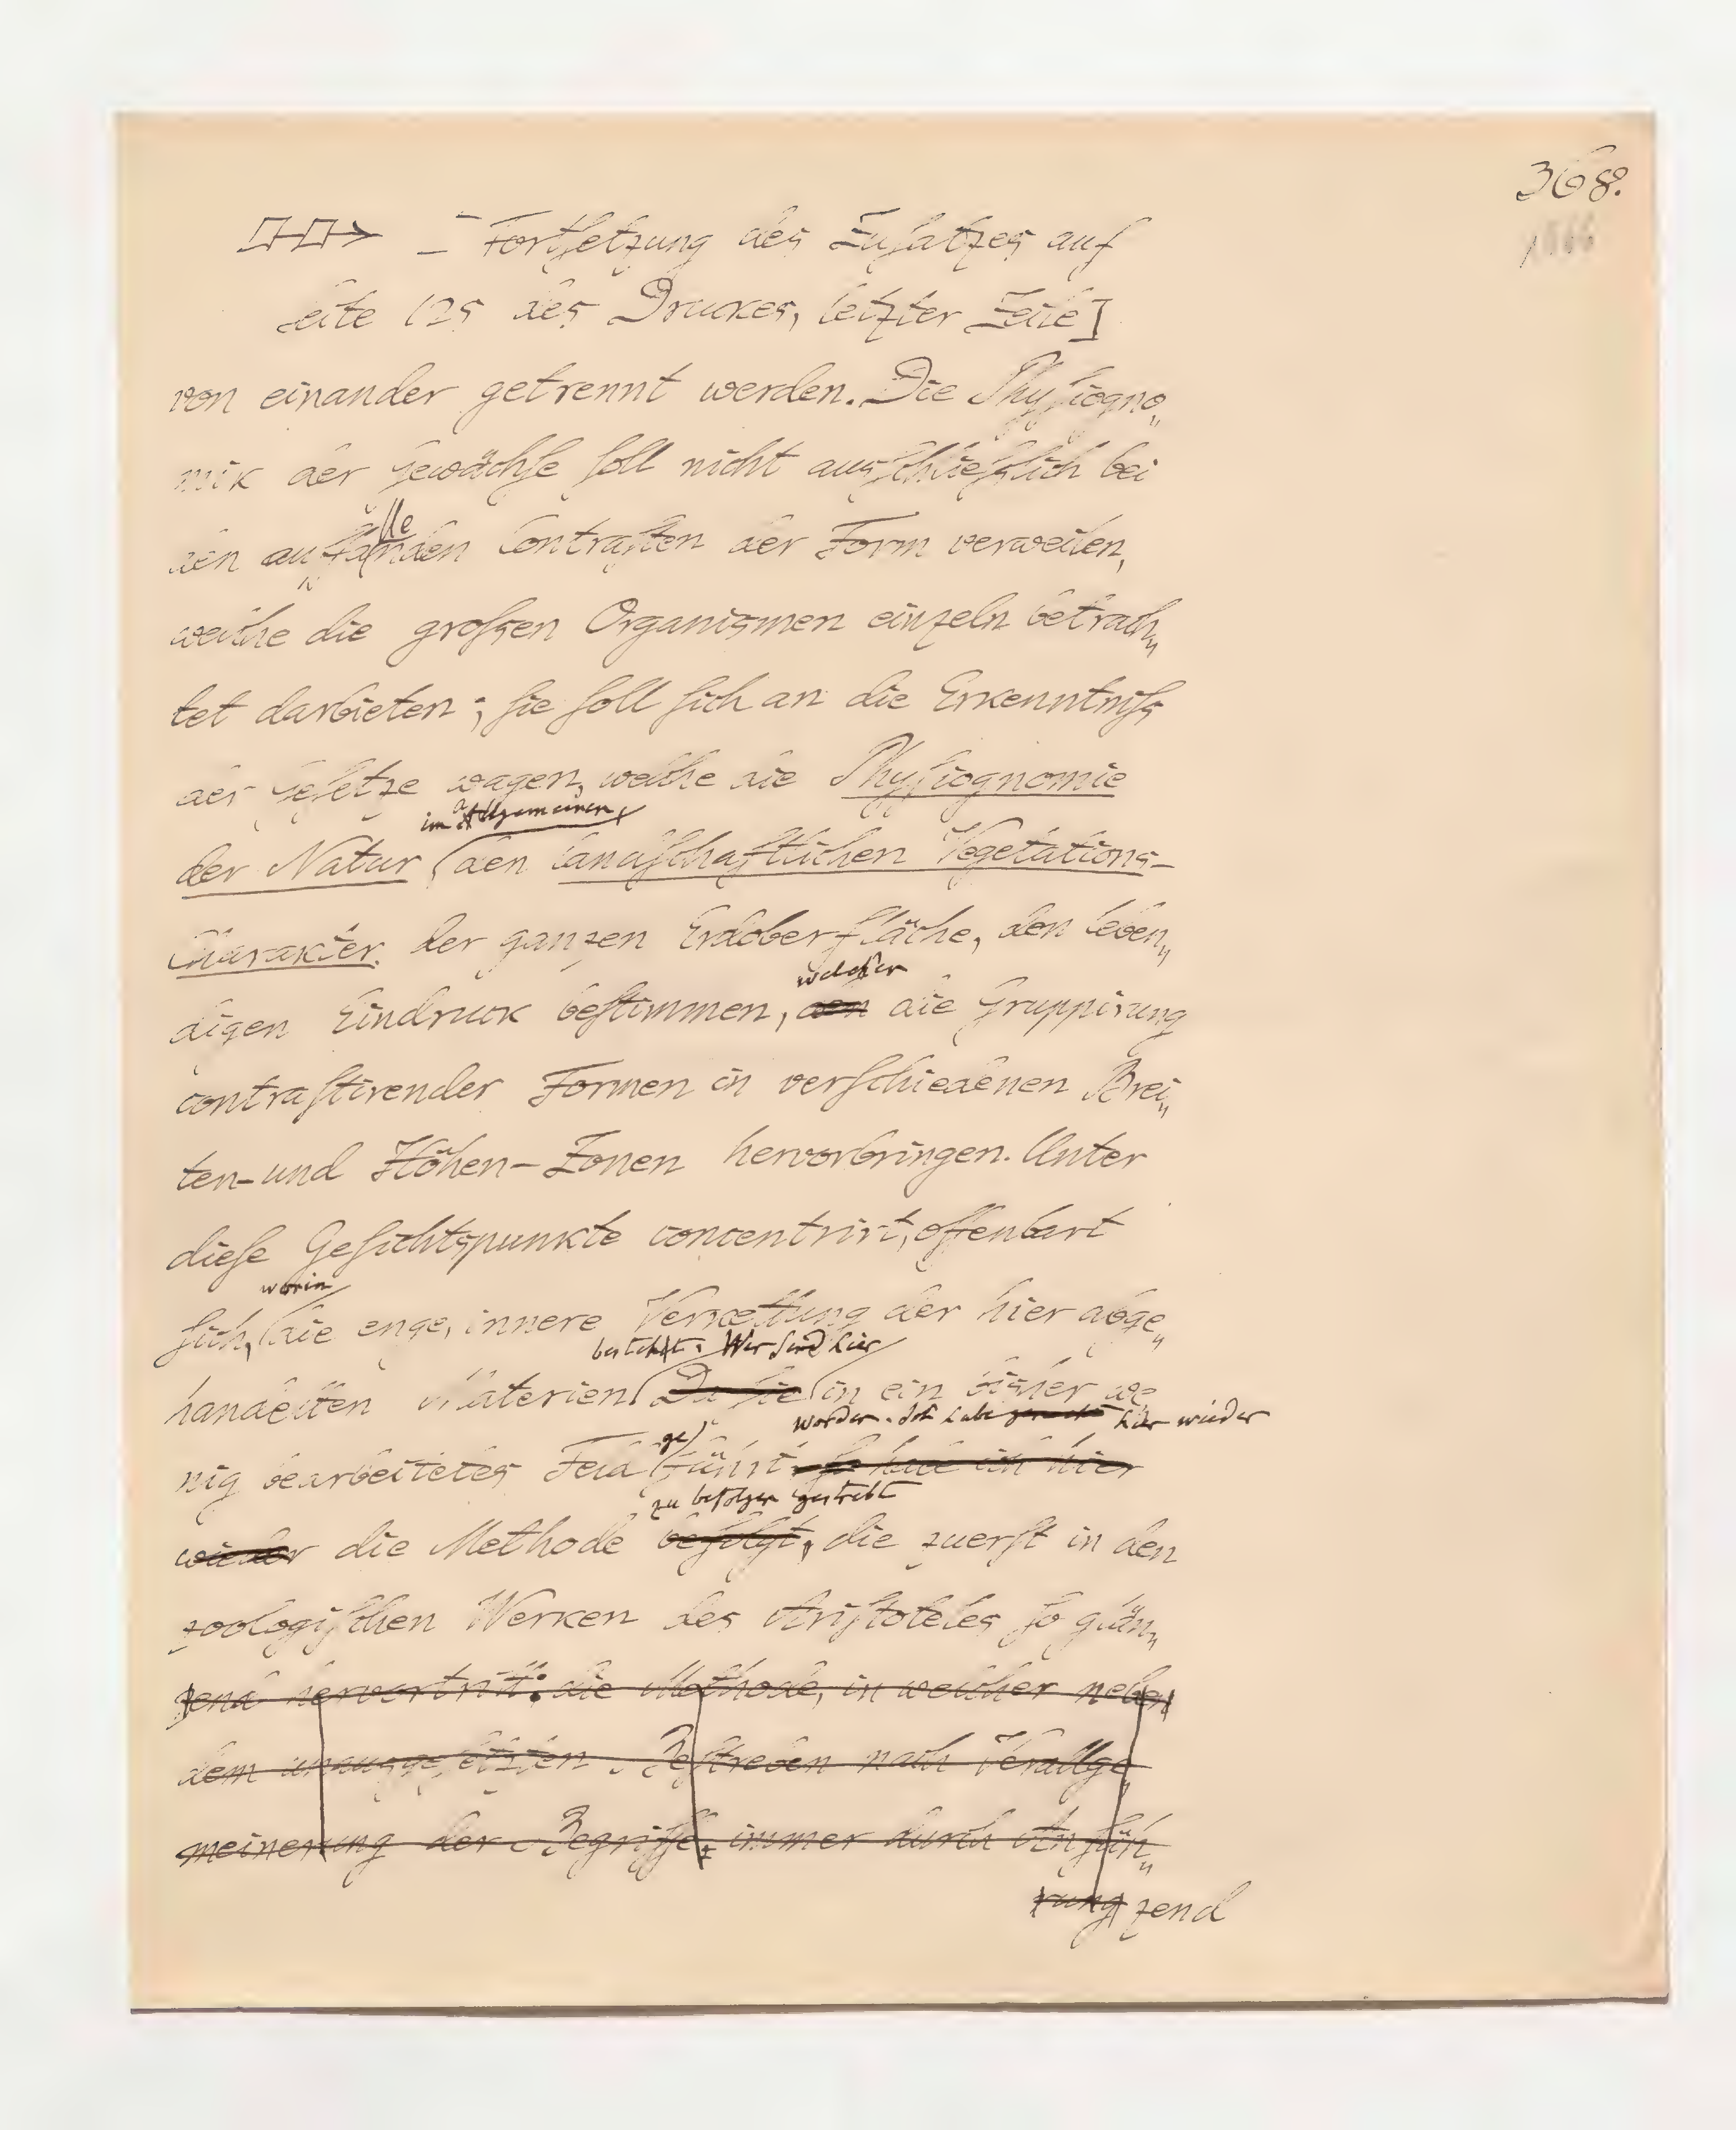 368.
1866
[Fortsetzung des Zusatzes auf
Seite 125 des Druckes, letzter Zeile]
von einander getrennt werden. Die Physiogno„
mik der Gewächse soll nicht ausschließlich bei
lle
den auffanden Contrasten der Form verweilen,
welche die großen Organismen einzeln betrach„
tet darbieten; sie soll sich an die Erkenntniß
der Gesetze wagen, welche die Physiognomie
im Allgemeinen,
der Natur den landschaftlichen Vegetations-
Charakter der ganzen Erdoberfläche, den leben„
welcher
digen Eindruck bestimmen, den die Gruppirung
contrastirender Formen in verschiedenen Brei„
ten- und Höhen-Zonen hervorbringen. Unter
diese Gesichtspunkte concentrirt, offenbart
worin
sich, die enge, innere Verkettung der hier abge„
besteht. Wir sind hier
handelten Materien Da sie in ein bisher we
worden. Ich habe hier wieder
ge
nig bearbeitetes Feld führt so habe ich hier
zu befolgen gestrebt
wieder die Methode befolgt, die zuerst in den
zoologischen Werken des Aristoteles so glän„
zend hervortritt: die Methode, in welcher neben
dem unausgesetzten Bestreben nach Verallge„
meinerung der Begriffe, immer durch Anfüh„
rung zend